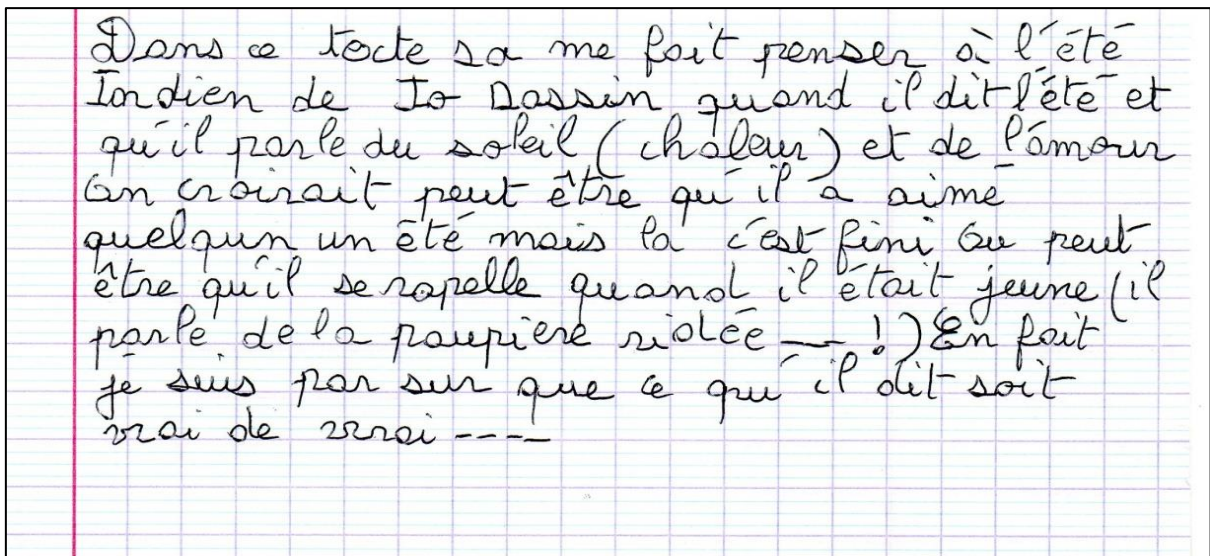 Dans ce tecte sa me fait penser à l'été
Indien de Jo Dassin quand il dit l'été et
qu'il parle du soleil (chaleur) et de l'amour
on croirait peut être qu'il a aimé
quelqun un été mais la c'est fini ou peut
être qu'il se rapelle quand il était jeune (il
parle de la paupière ridée --- !) En fait
je suis par sur que ce qu'il dit soit
vrai de vrai ----